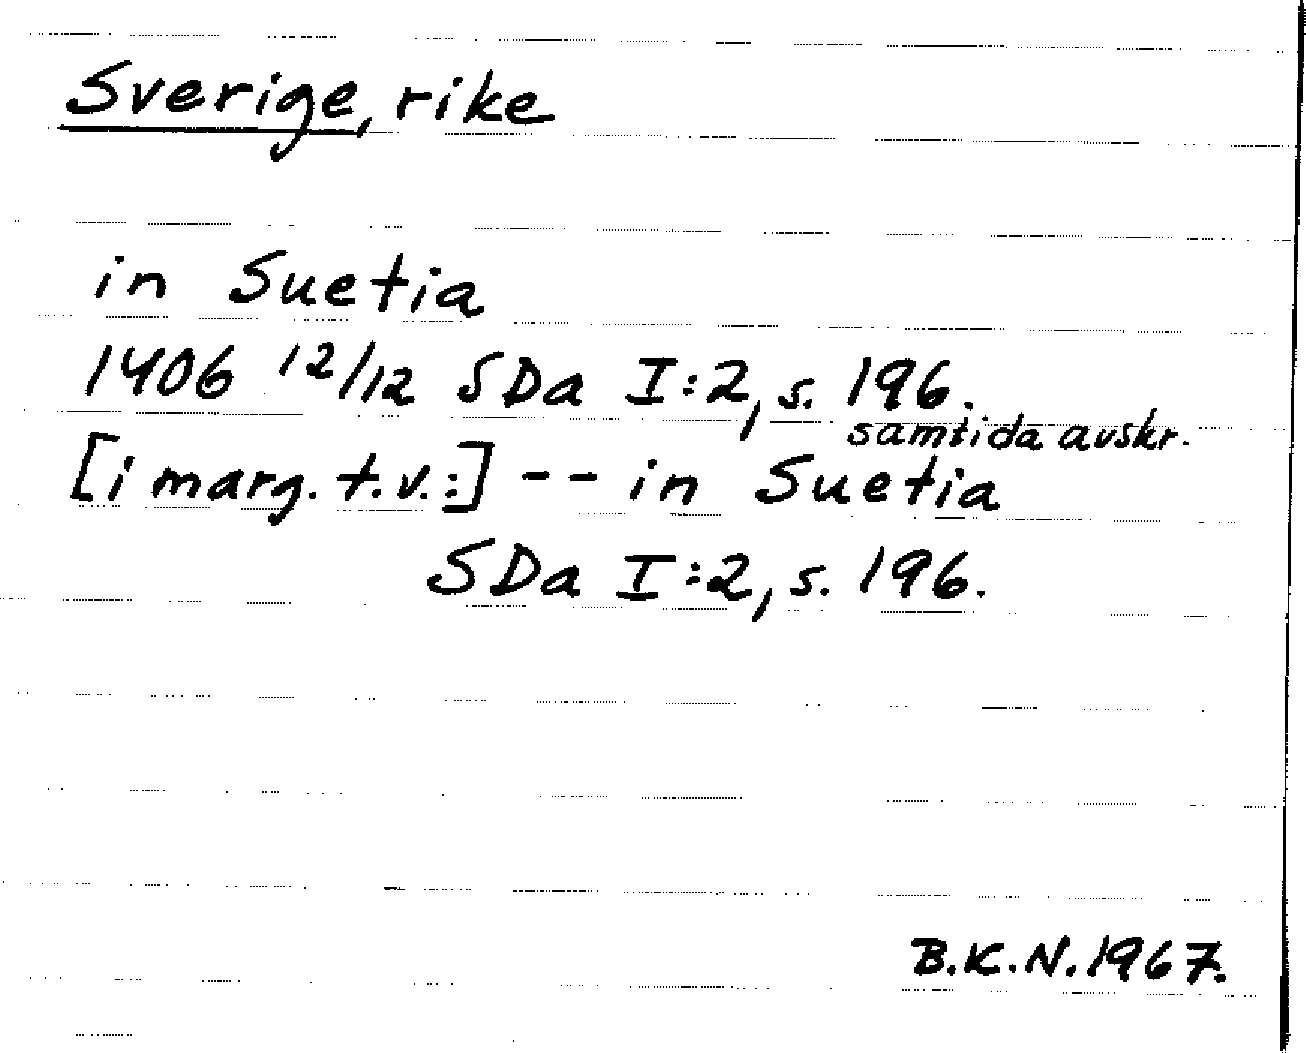 Sverige, rike
in Suetia
1406 12/12 SDa I:2, s. 196.
samtida avskr.
[i marg. t.v.:] -- in Suetia
SDa I:2, s. 196.
B.K.N. 1967.